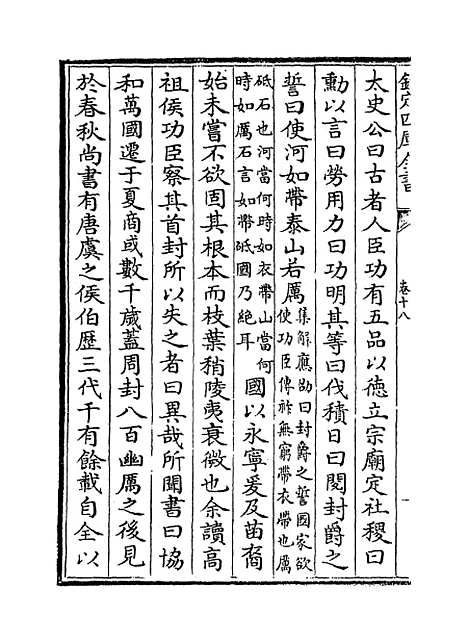 欽定四庫全書
卷十八
太史公曰古者人臣功有五品以德立宗廟定社稷曰
勳以言曰勞用力曰功明其等曰伐積日曰閱封爵之
誓曰使河如帶泰山若厲集解應劭曰封爵之誓國家欲使功臣傳祚無窮帶衣帶也厲
砥石也河當何時如衣帶山當何時如厲石言如帶砥國乃絶耳國以永寧爰及苗裔
始未嘗不欲固其根本而枝葉稍陵夷衰微也余讀高
祖侯功臣察其首封所以失之者曰異哉所聞書曰協
和萬國遷于夏商或數千歲蓋周封八百幽厲之後見
於春秋尚書有唐虞之侯伯歷三代千有餘載自全以